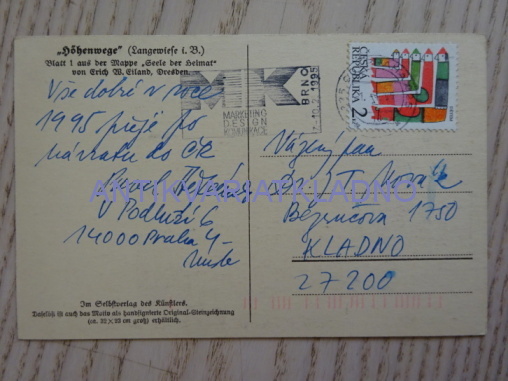 „Höhenwege" (Langewiese i. B.)
Blatt 1 aus der Mappe „Seele der Heimat"
von Erich W. Eiland, Dresden.
Vše dobré v roce
1995 přeje po
návratu do ČR
Pavel
V Podluží 6
14000 Praha 4-
MK
MARKETING
DESIGN
KOMUNIKACE
BRNO
1995
ČESKÁ
REPUBLIKA
2
Vážený pan
T. Novák
1750
KLADNO
27200
ANTIKVARIATKLADNO
Im Selbstverlag des Künstlers.
Dasselbe ist auch das Motiv als handsignierte Original-Steinzeichnung
(ca. 32 × 23 cm groß) erhältlich.